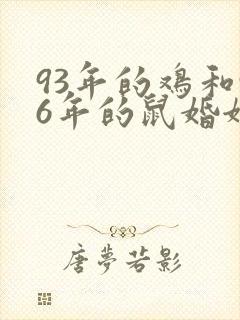 93年的鸡和
6年的鼠婚
唐夢若影